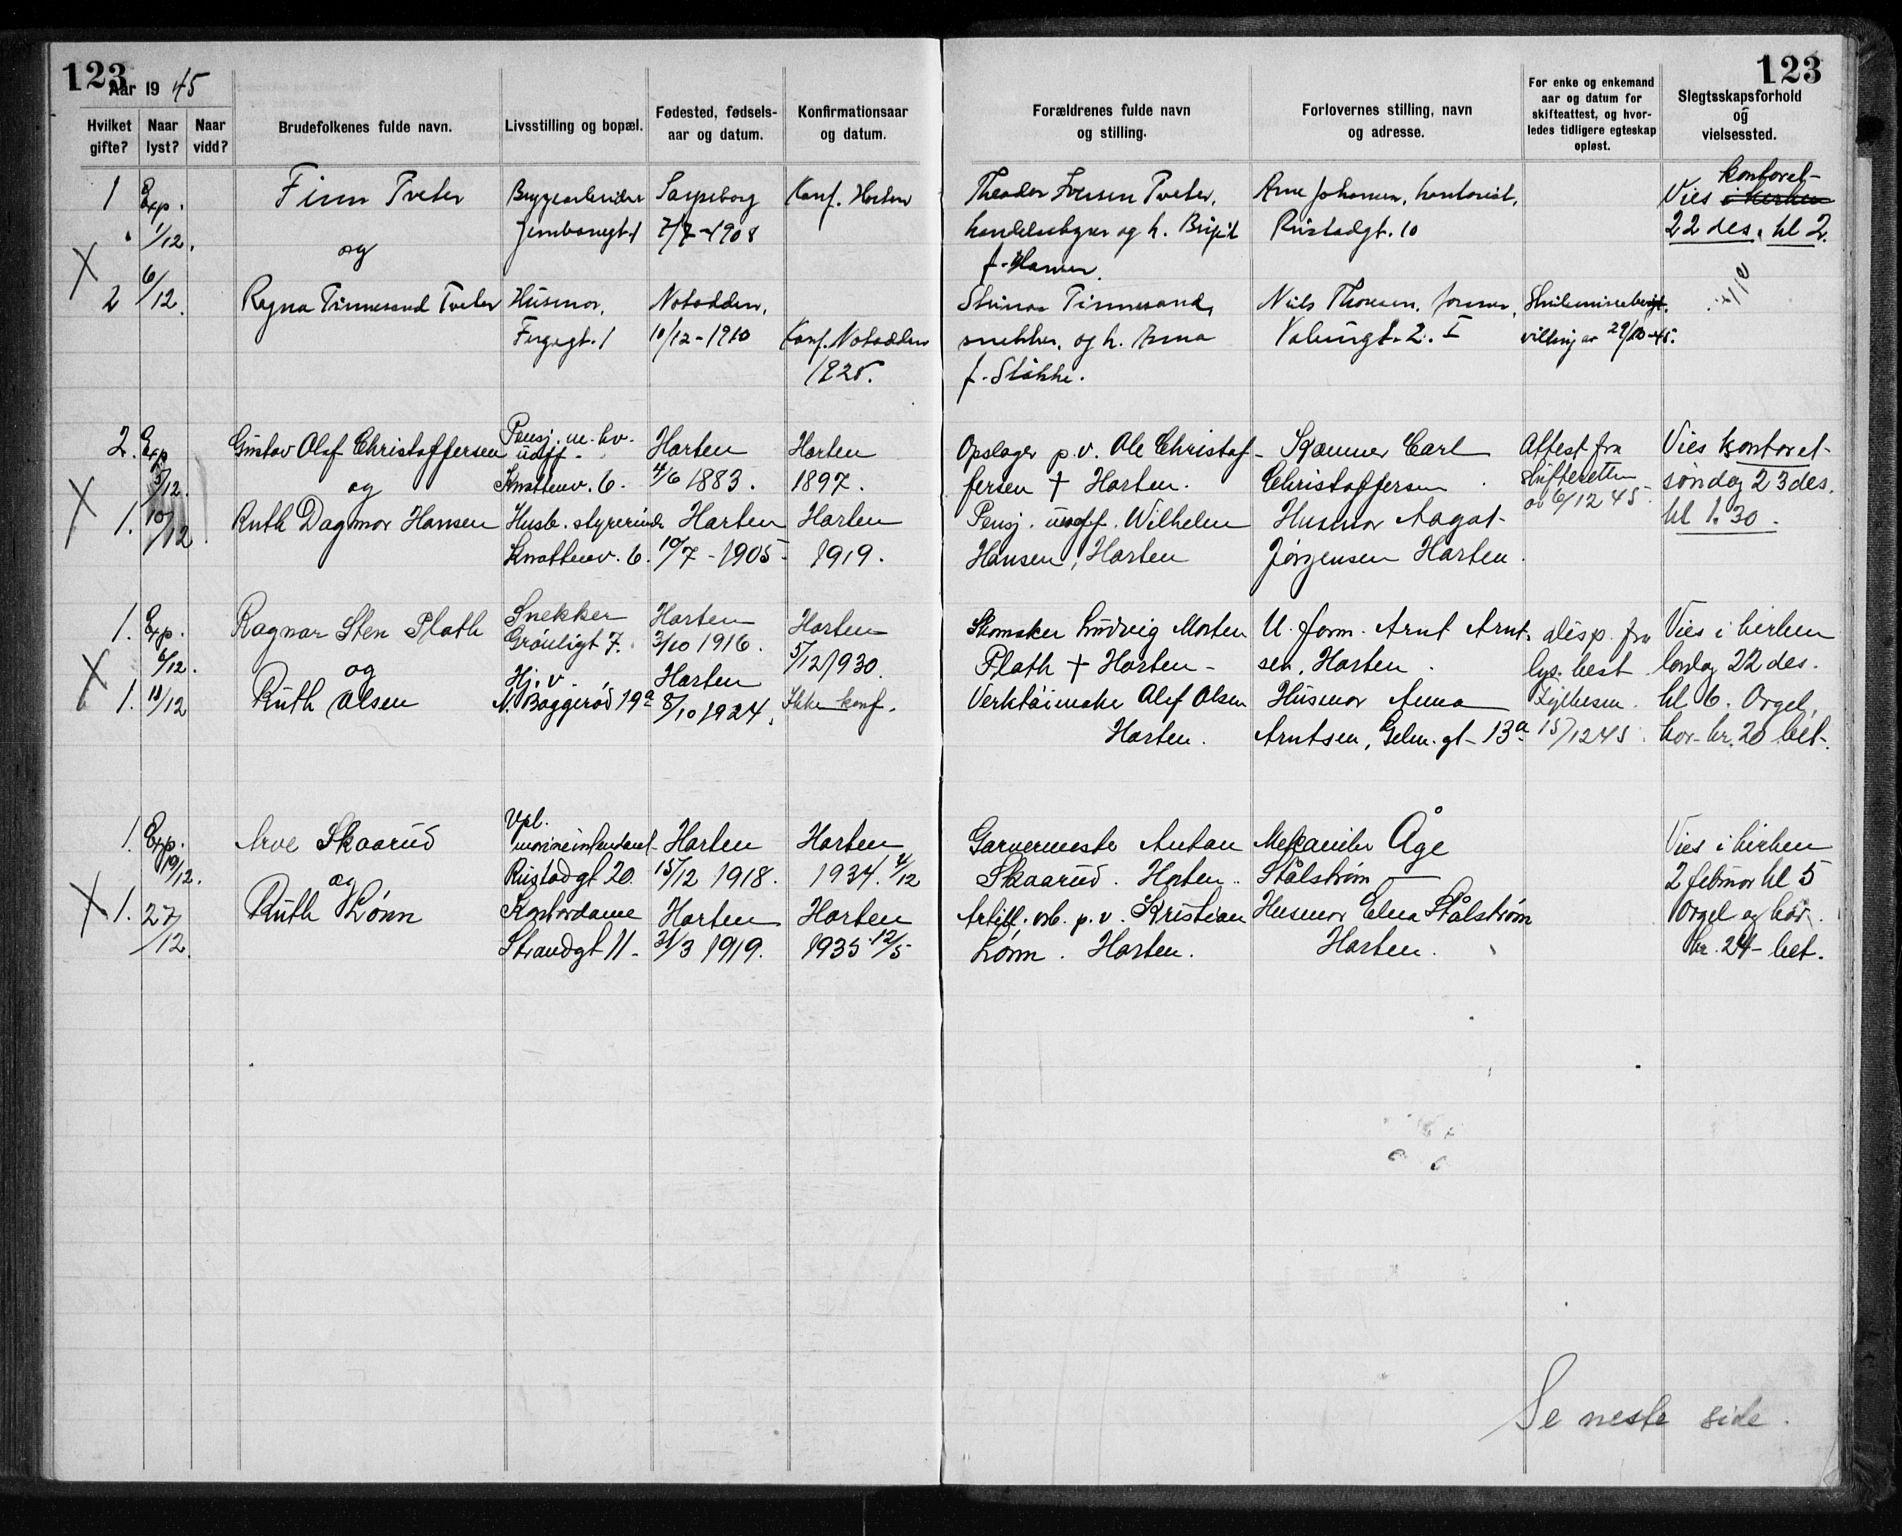 123
Aar 19 45
Hvilket gifte?
Naar lyst?
Naar vidd?
Brudefolkenes fulde navn.
Livsstilling og bopæl.
Fødested, fødsels-
aar og datum.
Konfirmationsaar
og datum.
1 Exp. Finn Tveter Sarpsborg Konf. Horten
1/12. 7/7-1908
og
X 6/12.
2 Ragna Tinnesand Tveter Husmor, Notodden,
Fergegt. 1 10/12-1910 Konf. Notodden
1925.
2. Exp Gustav Olaf Christoffersen Pensj. m. hv. Horten Horten
5/12. og Knattenv. 6. 4/6 1883. 1897.
X 1. 10/12 Ruth Dagmar Hansen Husb. styrerinde Horten Horten
Knattenv. 6. 10/7-1905 1919.
1. Exp. Ragnar Sten Plath Snekker Horten Horten
6/12. Grønligt 7. 3/10 1916. 5/12 1930.
X og Hj. v. Horten
1. 11/12 Ruth Olsen N. Baggerød 19a 8/10 1924. Ikke konf.
1. Exp. Arve Skaarud Vpl. Horten Horten
19/12. og Rustadgt 20. 15/12 1918. 1934. 2/12
X 1. 27/12. Ruth Lønn Kontordame Horten Horten
Strandgt 11- 31/3 1919. 1935 12/5
123
Forældrenes fulde navn
og stilling.
Forlovernes stilling, navn
og adresse.
For enke og enkemand
aar og datum for
skifteattest, og hvor-
ledes tidligere egteskap
opløst.
Slegtsskapsforhold
og
vielsessted.
kontoret-
Theodor Iversen Tveter, Arne Johansen, kontorist, Vies i kirken
handelsbyrer og h. Birgit Rustadgt. 10 22 des. kl 2.
f. Hansen.
Tinnesand, Niels Thoresen, former,
snekker, og h. Anna Valungt. 2. I villing av 29/10-45.
f. Stokke.
Opslager p.v. Ole Christof- Kanner Carl Attest fra Vies kontoret-
fersen † Horten. Christoffersen Skifteretten søndag 23 des.
Pensj. uoff. Wilhelm Husmor Aagot av 6/12 45 kl 1.30.
Hansen, Horten Jørgensen Horten.
Skomaker Ludvig Morten U. form. Arnt Arnt- disp. fra Vies i kirken
Plath † Horten- sen, Horten. lys. best lørdag 22 des.
Verktøimaker Olef Olsen Husmor Anna Fylkesm. kl 6. Orgel,
Horten. Arntsen, Gelm. gt- 13a. 15/12 45. kor- kr. 20 bet-.
Garvermester Anton Mekaniker Åge Vies i kirken
Skaarud. Horten. Stålstrøm 2 februar kl 5
Artill. arb. p.v. Kristian Husmor Elna Stålstrøm Orgel og kor.
Lønn. Horten. Horten. kr. 24- bet.
Se neste side.